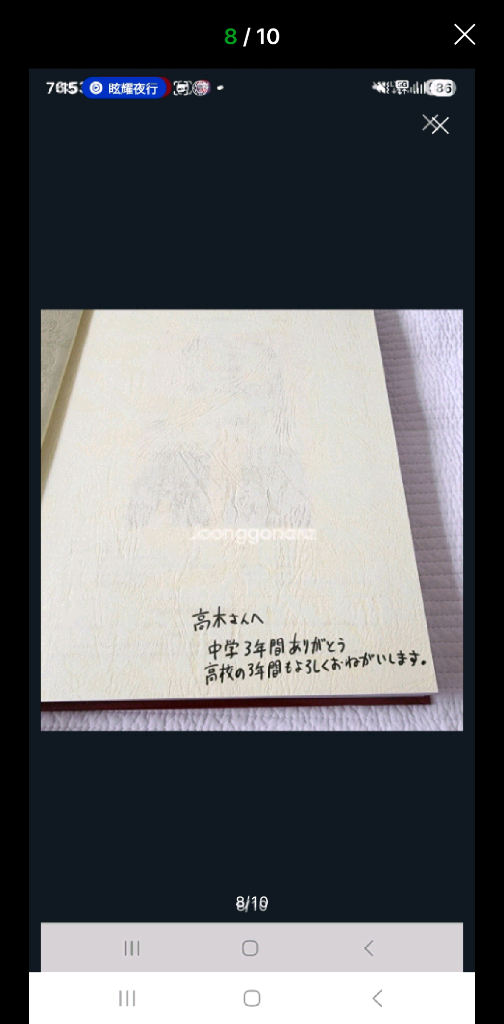 8 / 10
眩耀夜行
86
Joonggonara
高木さんへ
中学3年間ありがとう
高校の3年間もよろしくおねがいします。
8/10